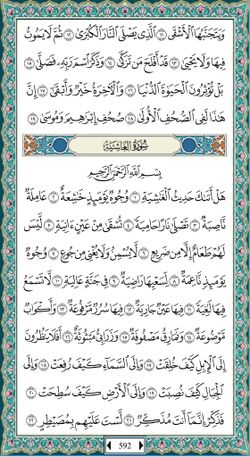 وَيَتَجَنَّبُهَا الْأَشْقَى ١١ الَّذِي يَصْلَى النَّارَ الْكُبْرَىٰ ١٢ ثُمَّ لَا يَمُوتُ
فِيهَا وَلَا يَحْيَىٰ ١٣ قَدْ أَفْلَحَ مَن تَزَكَّىٰ ١٤ وَذَكَرَ اسْمَ رَبِّهِ فَصَلَّىٰ ١٥
بَلْ تُؤْثِرُونَ الْحَيَوٰةَ الدُّنْيَا ١٦ وَالْآخِرَةُ خَيْرٌ وَأَبْقَىٰ ١٧ إِنَّ
هَٰذَا لَفِي الصُّحُفِ الْأُولَىٰ ١٨ صُحُفِ إِبْرَٰهِيمَ وَمُوسَىٰ ١٩
سُورَةُ الْغَاشِيَةِ
بِسْمِ اللَّهِ الرَّحْمَٰنِ الرَّحِيمِ
هَلْ أَتَىٰكَ حَدِيثُ الْغَٰشِيَةِ ١ وُجُوهٌ يَوْمَئِذٍ خَٰشِعَةٌ ٢ عَامِلَةٌ
نَّاصِبَةٌ ٣ تَصْلَىٰ نَارًا حَامِيَةً ٤ تُسْقَىٰ مِنْ عَيْنٍ ءَانِيَةٍ ٥ لَّيْسَ
لَهُمْ طَعَامٌ إِلَّا مِن ضَرِيعٍ ٦ لَّا يُسْمِنُ وَلَا يُغْنِي مِن جُوعٍ ٧ وُجُوهٌ
يَوْمَئِذٍ نَّاعِمَةٌ ٨ لِّسَعْيِهَا رَاضِيَةٌ ٩ فِي جَنَّةٍ عَالِيَةٍ ١٠ لَّا تَسْمَعُ
فِيهَا لَٰغِيَةً ١١ فِيهَا عَيْنٌ جَارِيَةٌ ١٢ فِيهَا سُرُرٌ مَّرْفُوعَةٌ ١٣ وَأَكْوَابٌ
مَّوْضُوعَةٌ ١٤ وَنَمَارِقُ مَصْفُوفَةٌ ١٥ وَزَرَابِيُّ مَبْثُوثَةٌ ١٦ أَفَلَا يَنظُرُونَ
إِلَى الْإِبِلِ كَيْفَ خُلِقَتْ ١٧ وَإِلَى السَّمَاءِ كَيْفَ رُفِعَتْ ١٨ وَإِلَى
الْجِبَالِ كَيْفَ نُصِبَتْ ١٩ وَإِلَى الْأَرْضِ كَيْفَ سُطِحَتْ ٢٠
فَذَكِّرْ إِنَّمَا أَنتَ مُذَكِّرٌ ٢١ لَّسْتَ عَلَيْهِم بِمُصَيْطِرٍ ٢٢
592